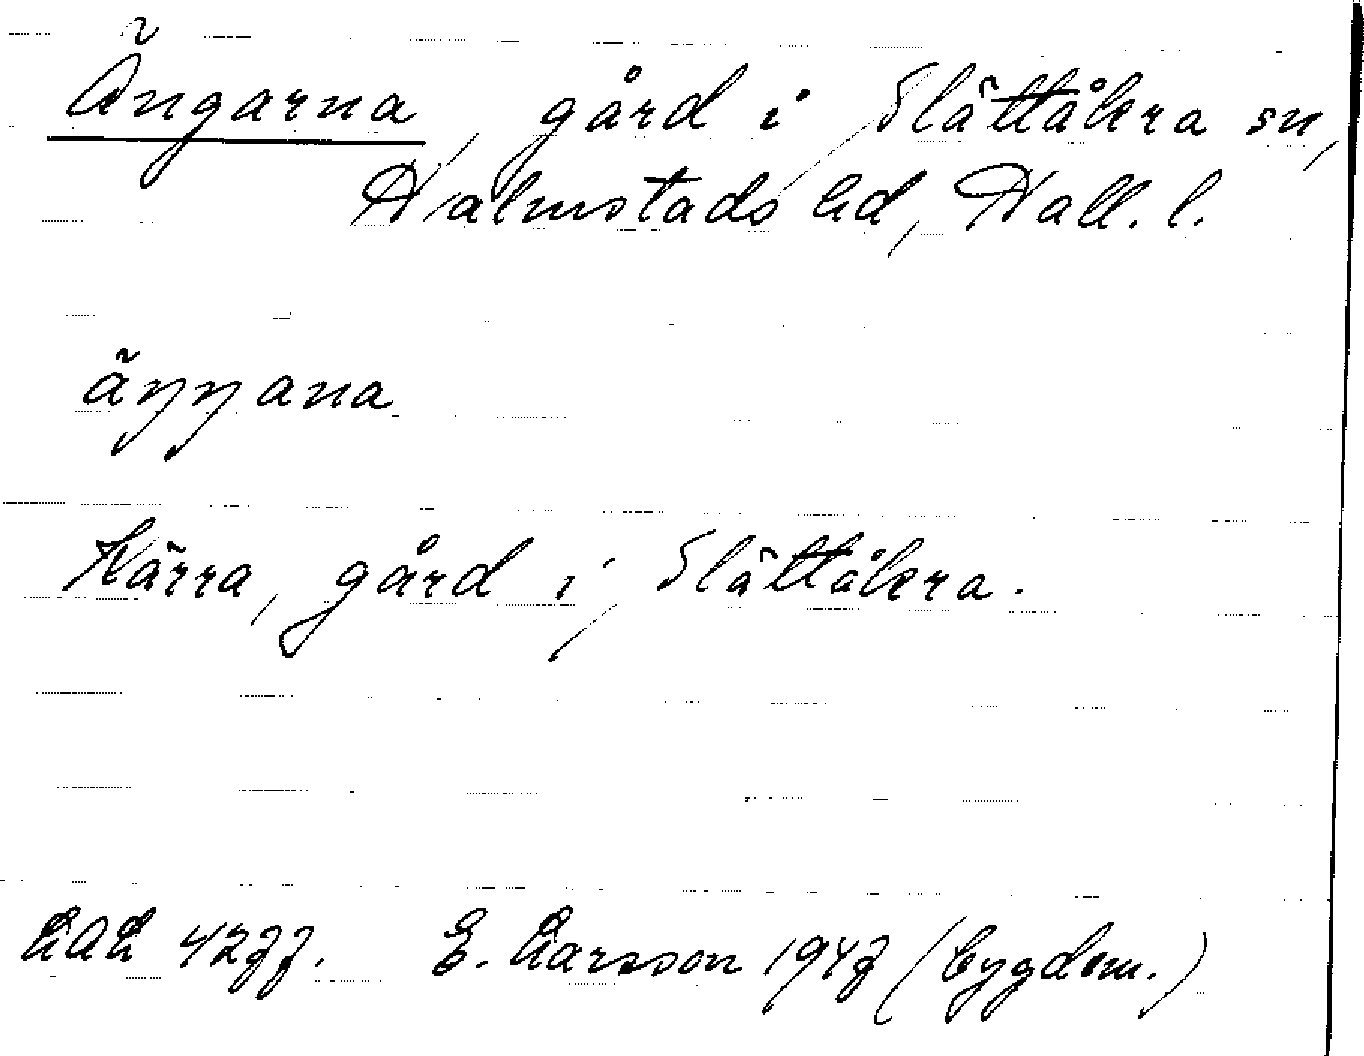 Ängarna, gård i Slättåkra sn,
Halmstads hd, Hall. l.
äŋŋana
Kärra, gård i Slättåkra.
E. Larsson (bygdem.)